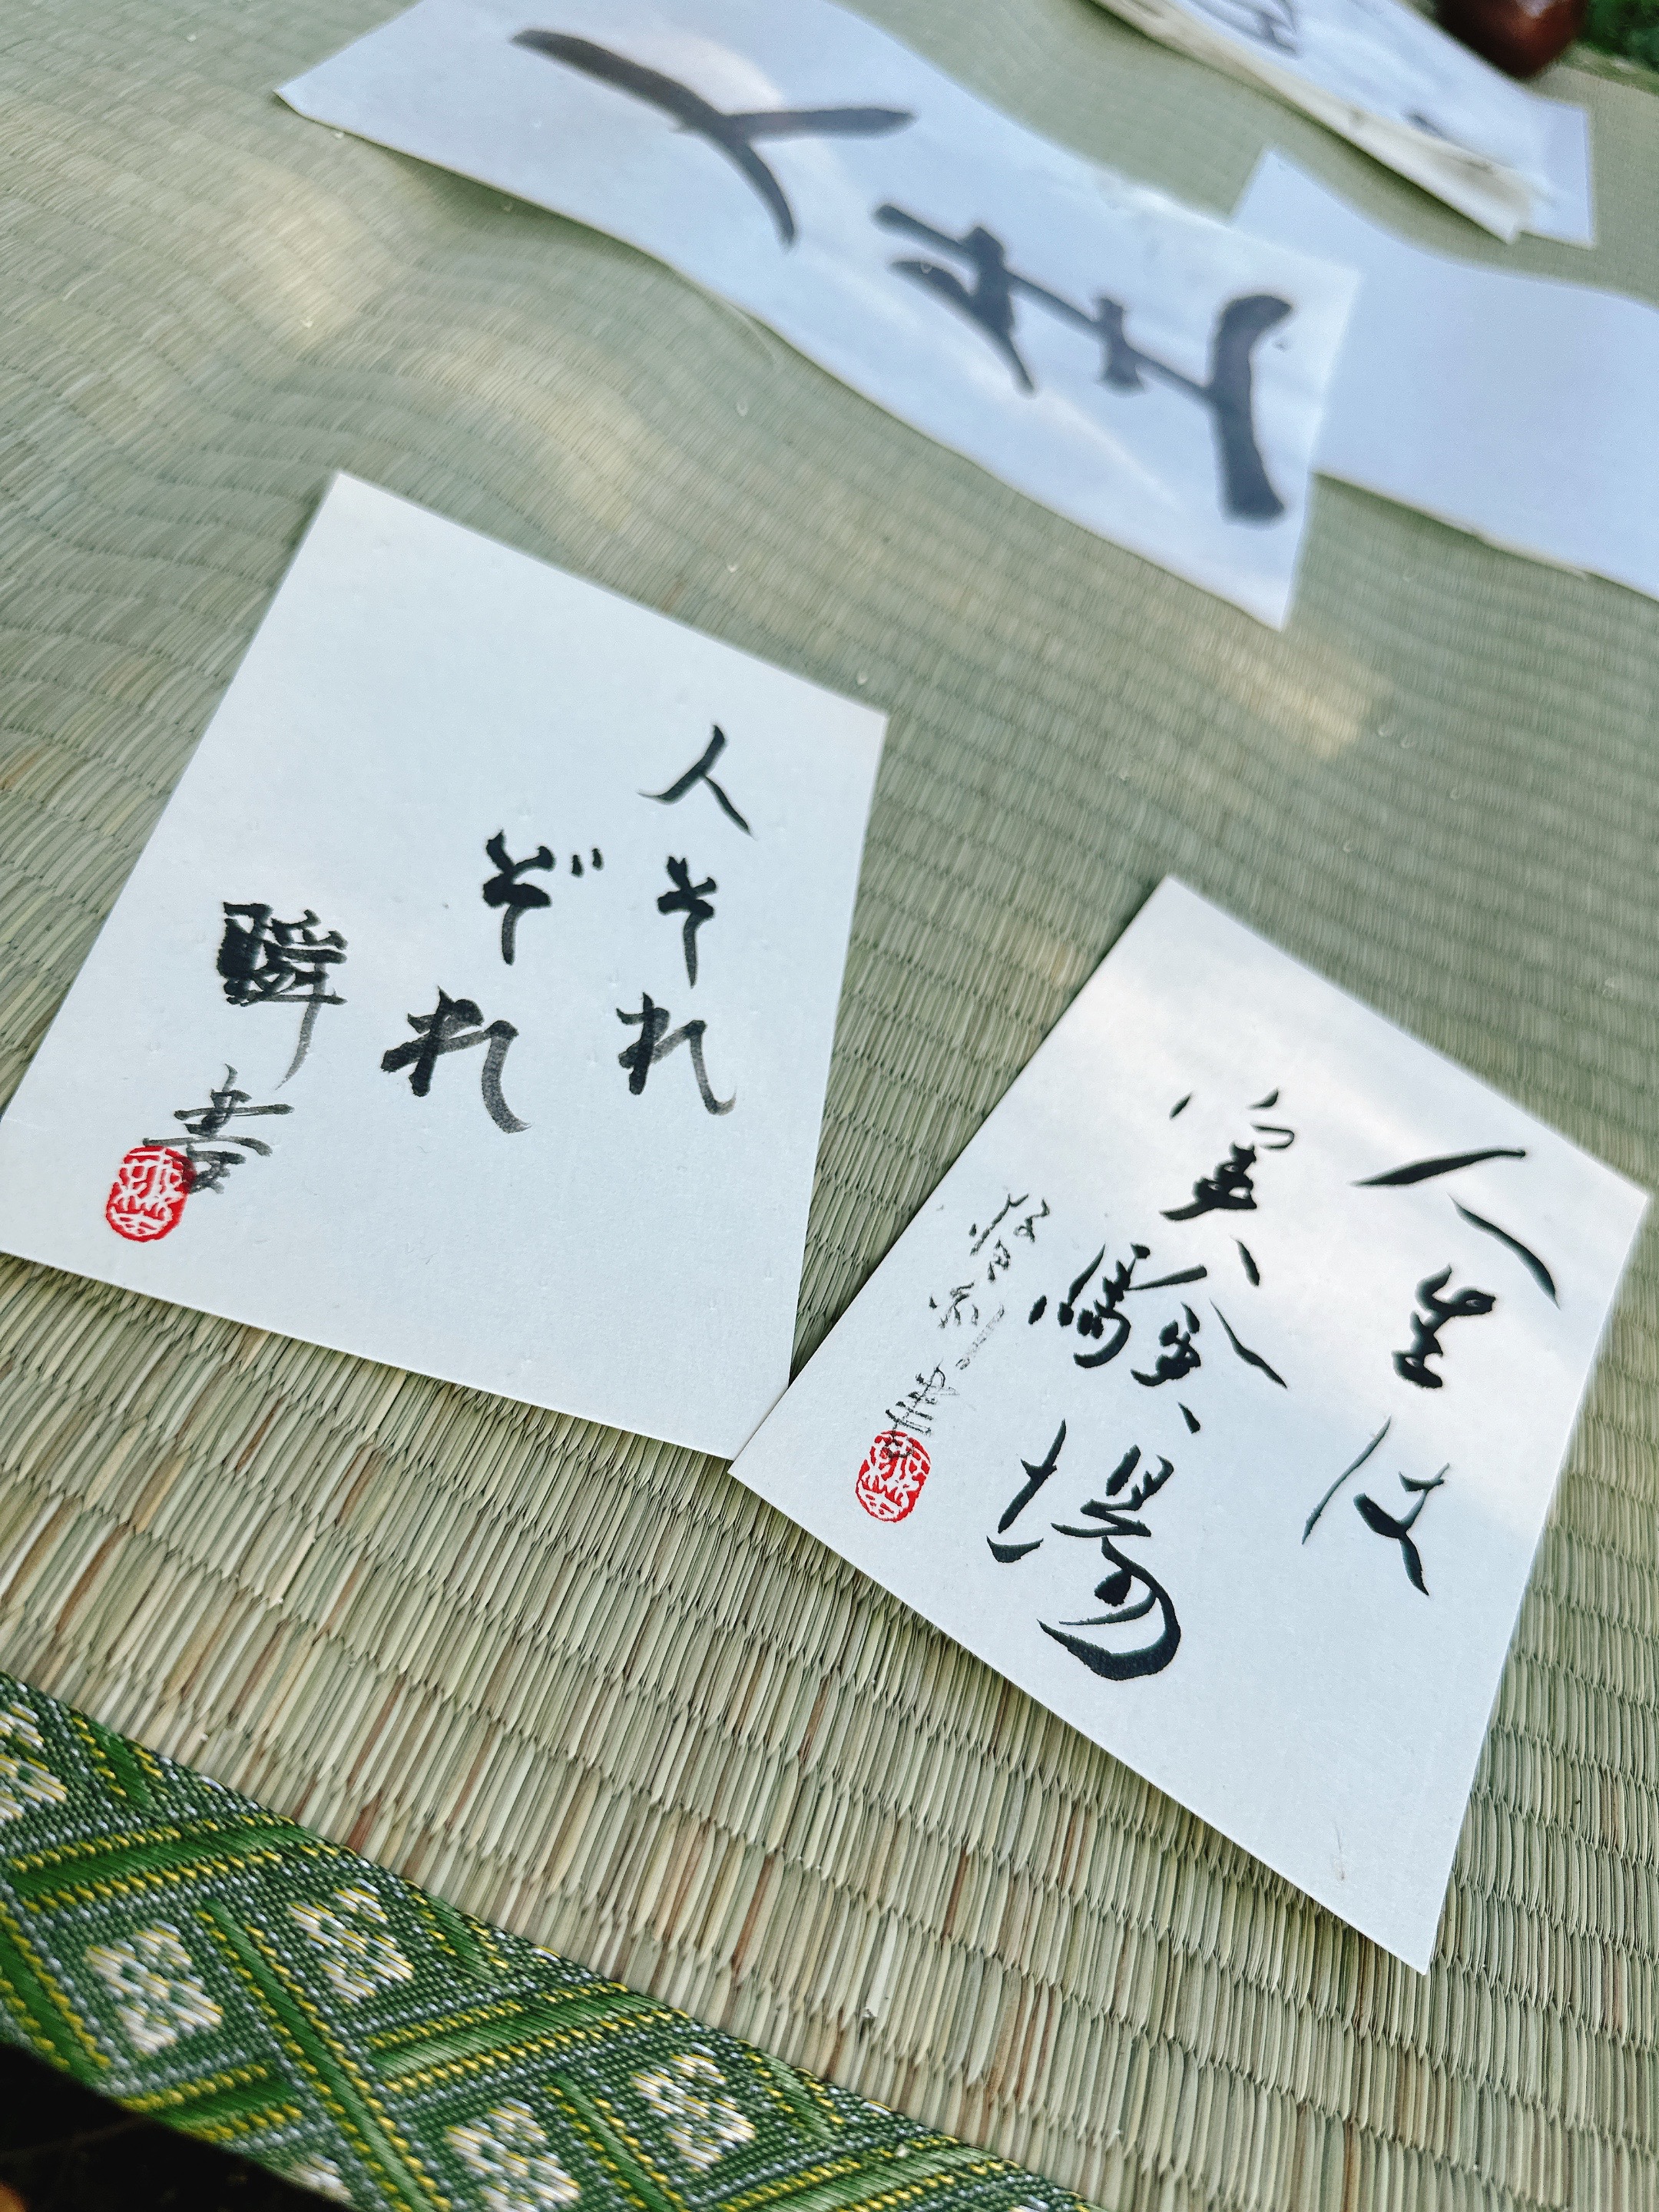 人生
人それ
ぞれ
瞬
人生は
實験場